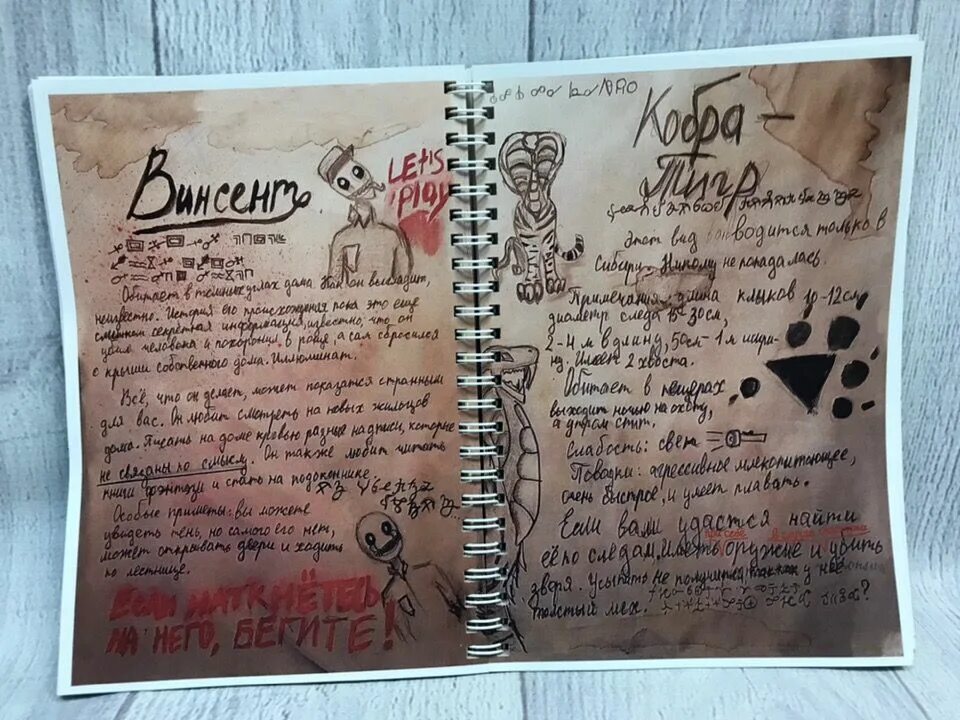 Винсент
LEt's
PlAy
Обитает в тёмных углах дома. Как он выглядит,
неизвестно. История его происхождения пока это ещё
секретная информация, известно, что он
убил человека и похоронил в роще, а сам сбросился
с крыши собственного дома. Иллюминат.
Всё, что он делает, может показатся странным
для вас. Он любит смотреть на новых жильцов
дома. Писать на доме кровью разные надписи, которые
не связаны по смыслу. Он также любит читать
книги фэнтези и спать на подоконнике.
Особые приметы: вы можете
увидеть тень, но самого его нет,
может открывать двери и ходить
по лестнице.
Если наткнётесь
на него, БЕГИТЕ!
Кобра-
Тигр
Этот вид водится только в
Сибири. Никому не попадалась.
Примечания: длина клыков 10-12см,
диаметр следа 15-30см,
2-4 м в длину, 50см-1м шири-
ну. Имеет 2 хвоста.
Обитает в пещерах
выходит ночью на охоту,
а утром спит.
Слабость: свет
Повадки: агрессивное млекопитающее,
очень быстрое, и умеет плавать.
Если вам удастся найти
её по следам, иметь при себе оружие и убить
зверя. Усыпить не получится, так как у неё
толстый мех.